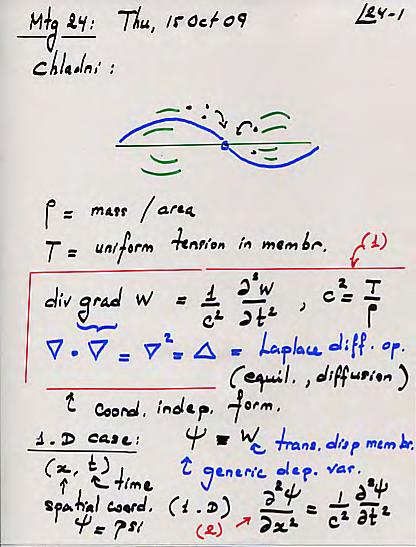 Mtg 24: Thu, 15 Oct 09 L24-1
Chladni:
ρ = mass / area
T = uniform tension in membr. (1)
div grad W = 1/c² ∂²W/∂t² , c² = T/ρ
∇ · ∇ = ∇² = Δ = Laplace diff. op.
(equil., diffusion)
↑ coord. indep. form.
1.D case: ψ ≡ W ← trans. disp membr.
(x, t) ← time ↑ generic dep. var.
spatial coord. (1.D) ∂²ψ/∂x² = 1/c² ∂²ψ/∂t²
ψ = psi (2)